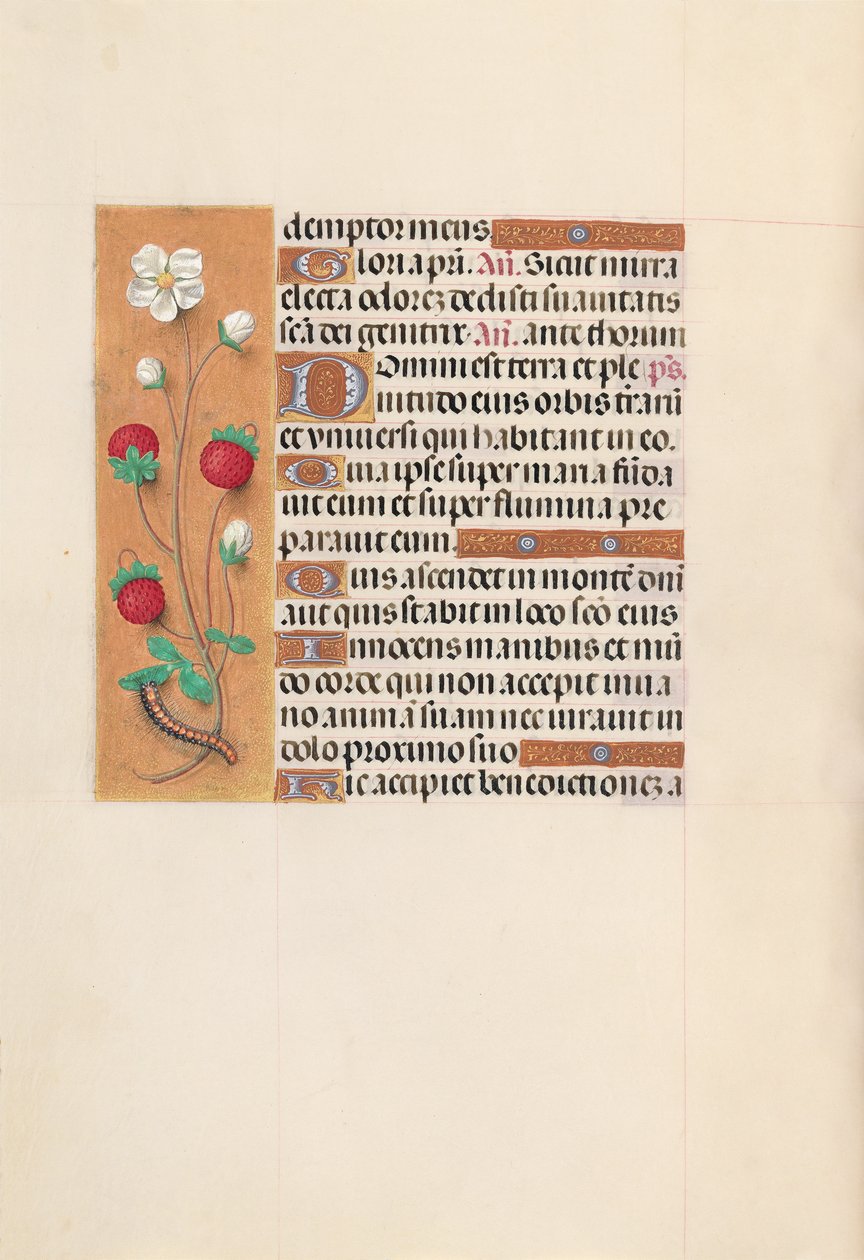 demptor meus.
Gloria pr̄i. An̄. Sicut mirra
electa odorez dedisti suauitatis
sc̄ā dei genitrix. An̄. ante thorum
Domini est terra et ple ps̄.
nitudo eius orbis tr̄arū
et vniuersi qui habitant in eo.
Quia ipse super maria fūda
uit eum et super flumina pre
parauit eum.
Quis ascendet in montē dn̄i
aut quis stabit in loco sc̄o eius
Innocens manibus et mū
do corde qui non accepit in ua
no animā suam nec iurauit in
dolo proximo suo
Hic accipiet benedictionez a